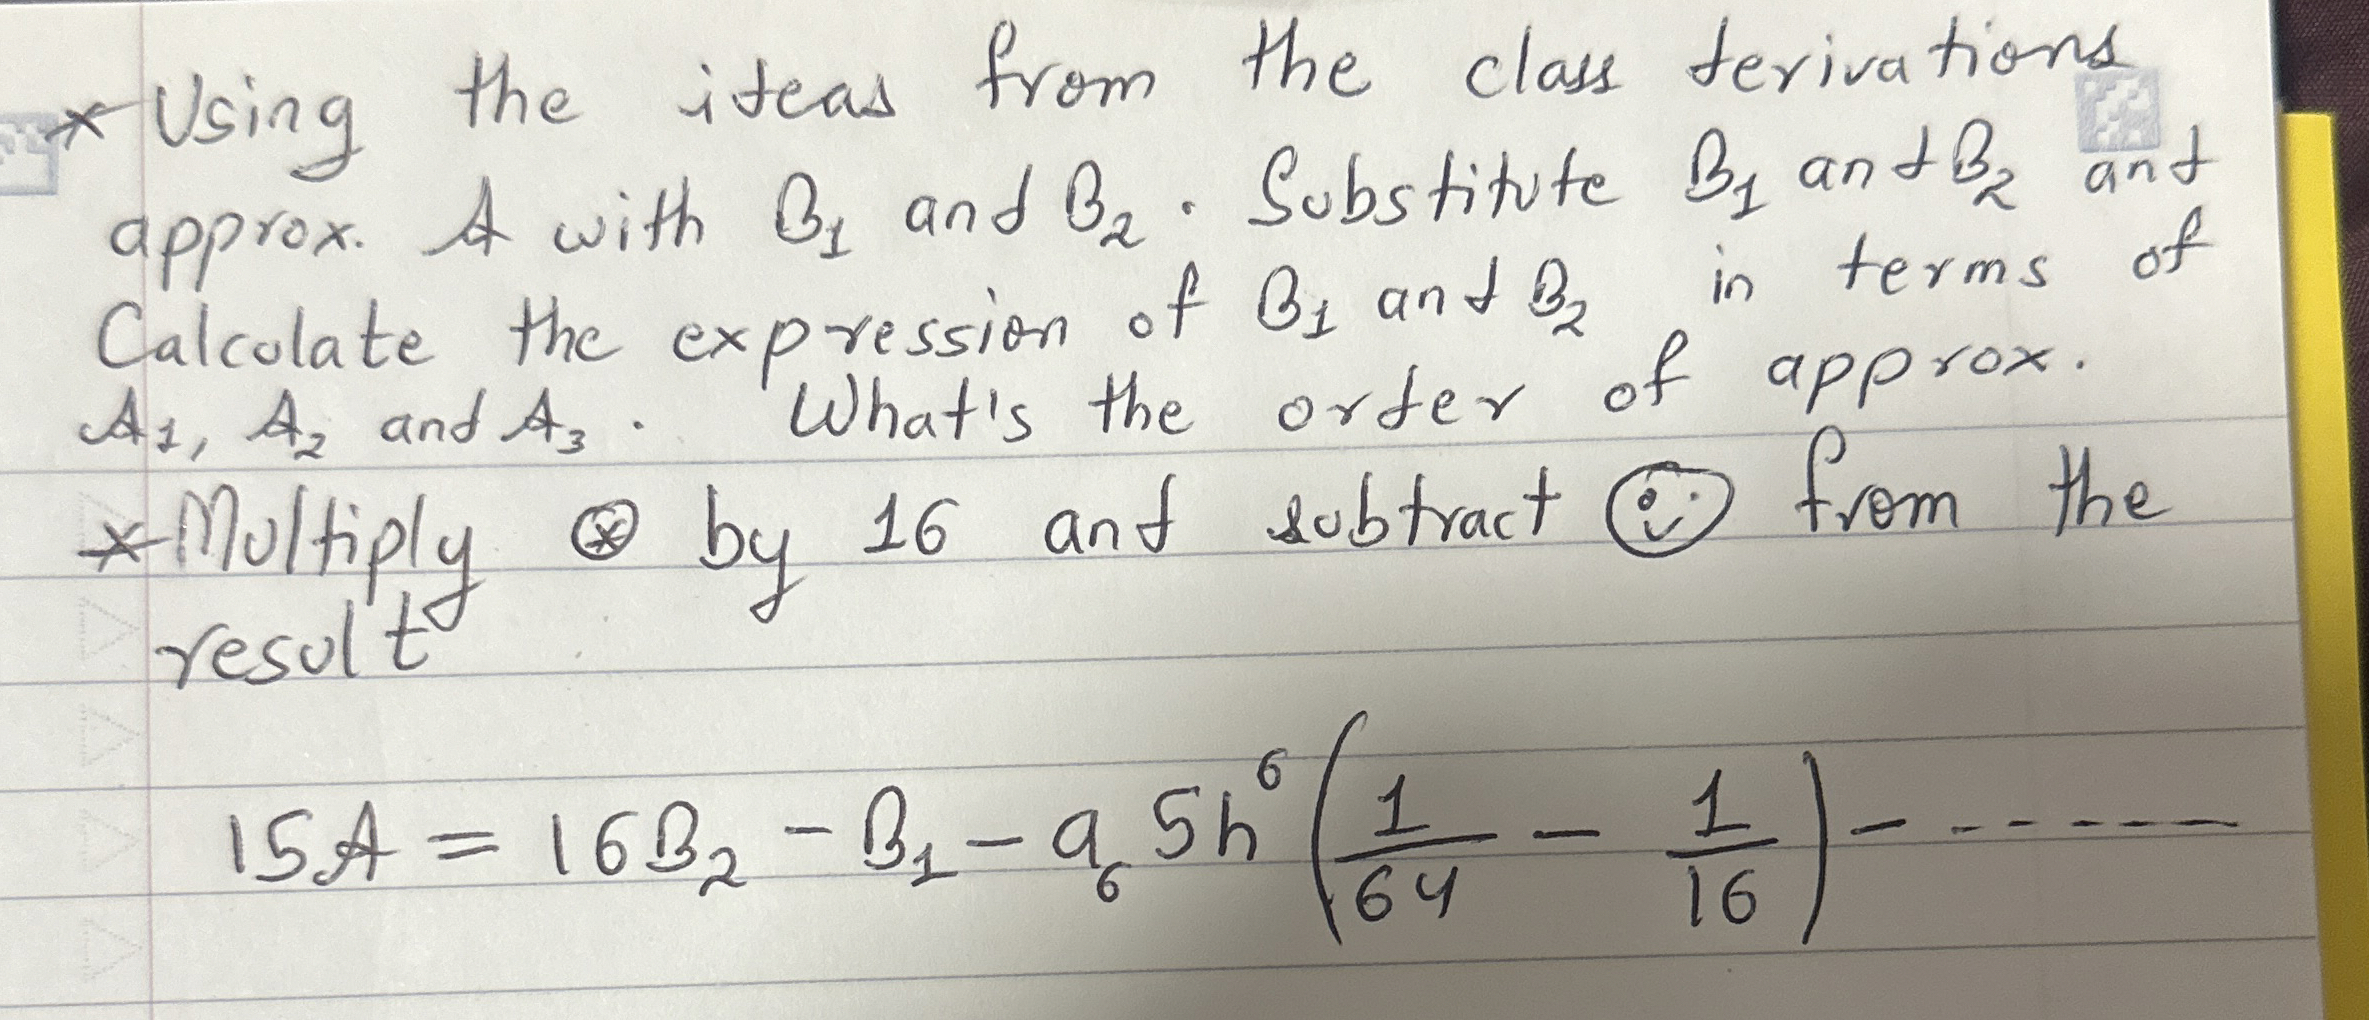 * Using the ideas from the class derivations
approx. A with B₁ and B₂. Substitute B₁ and B₂ and
Calculate the expression of B₁ and B₂ in terms of
A₁, A₂ and A₃. What's the order of approx.
* Multiply ⊛ by 16 and subtract ☺ from the
result
15A = 16B₂ - B₁ - a₆ 5h⁶ (1/64 - 1/16) - - - - - - -